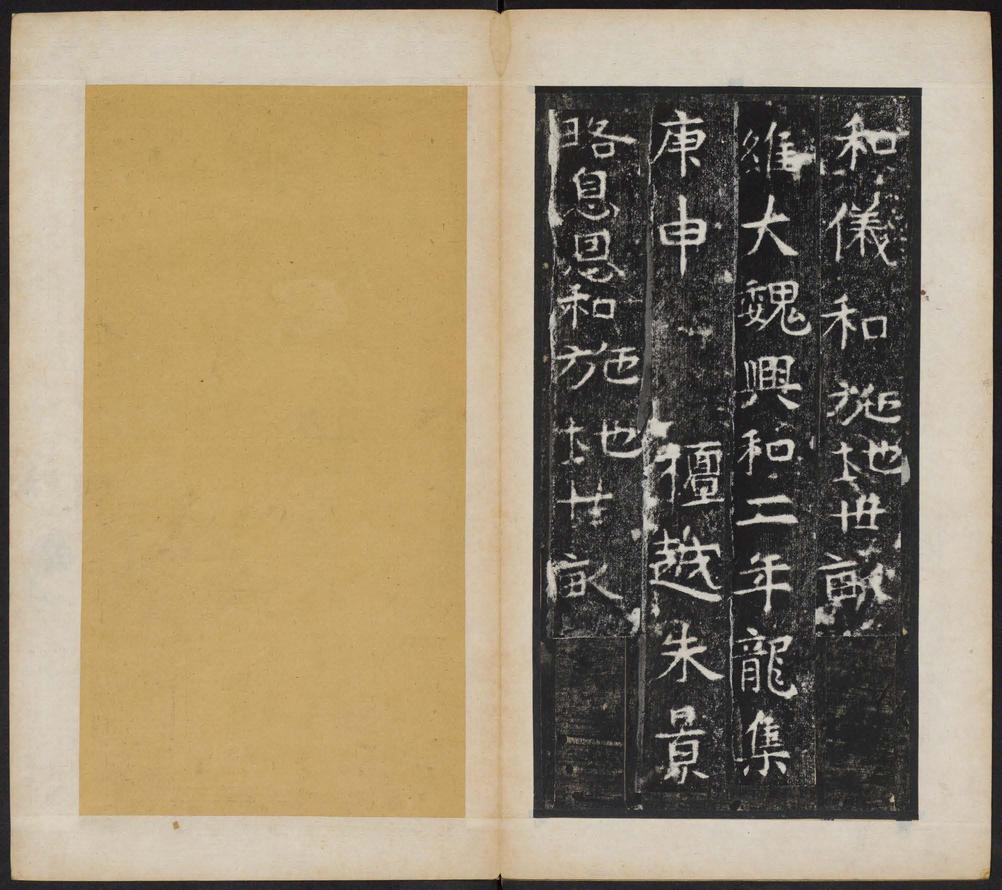 和儀和施地卅畝
維大魏興和二年龍集
庚申 檀越朱景
略息恩和施地廿畝